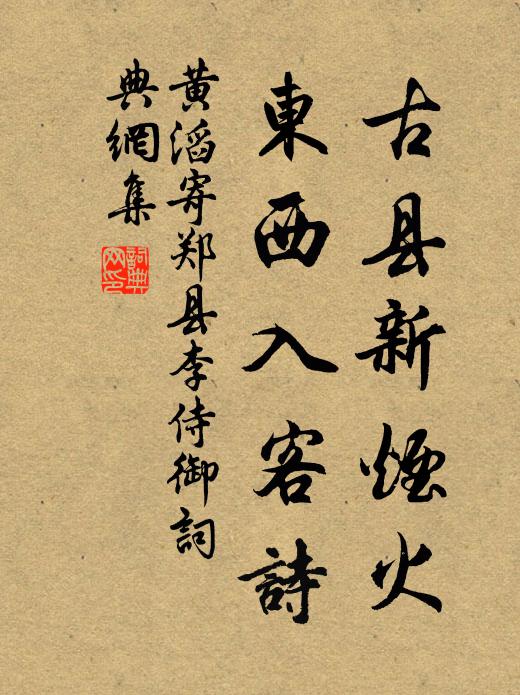 古县新煙火
東西入客詩
黄滔寄郑县李侍御詞
典網集
詞典
网印